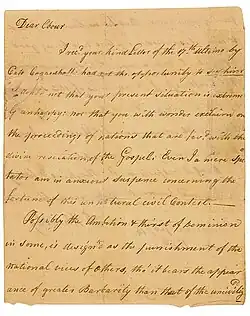 Dear Cosur
I recd. your kind Letter of the 17th Ultimo by
Capt. Coggeshall had not the opportunity to
I doubt not that your present situation is extremly
unhappy: nor that you with wonder exclaim on
the proceedings of nations that are favd. with the
divine revelation of the Gospel. Even I a mere Spec
tator am in anxious suspence concerning the
fortune of this unnatural civil Contest.
Possibly the Ambition & thirst of dominion
in some, is design'd as the punishment of the
national vices of others, tho' it bears the appear
ance of greater Barbarity than that of the